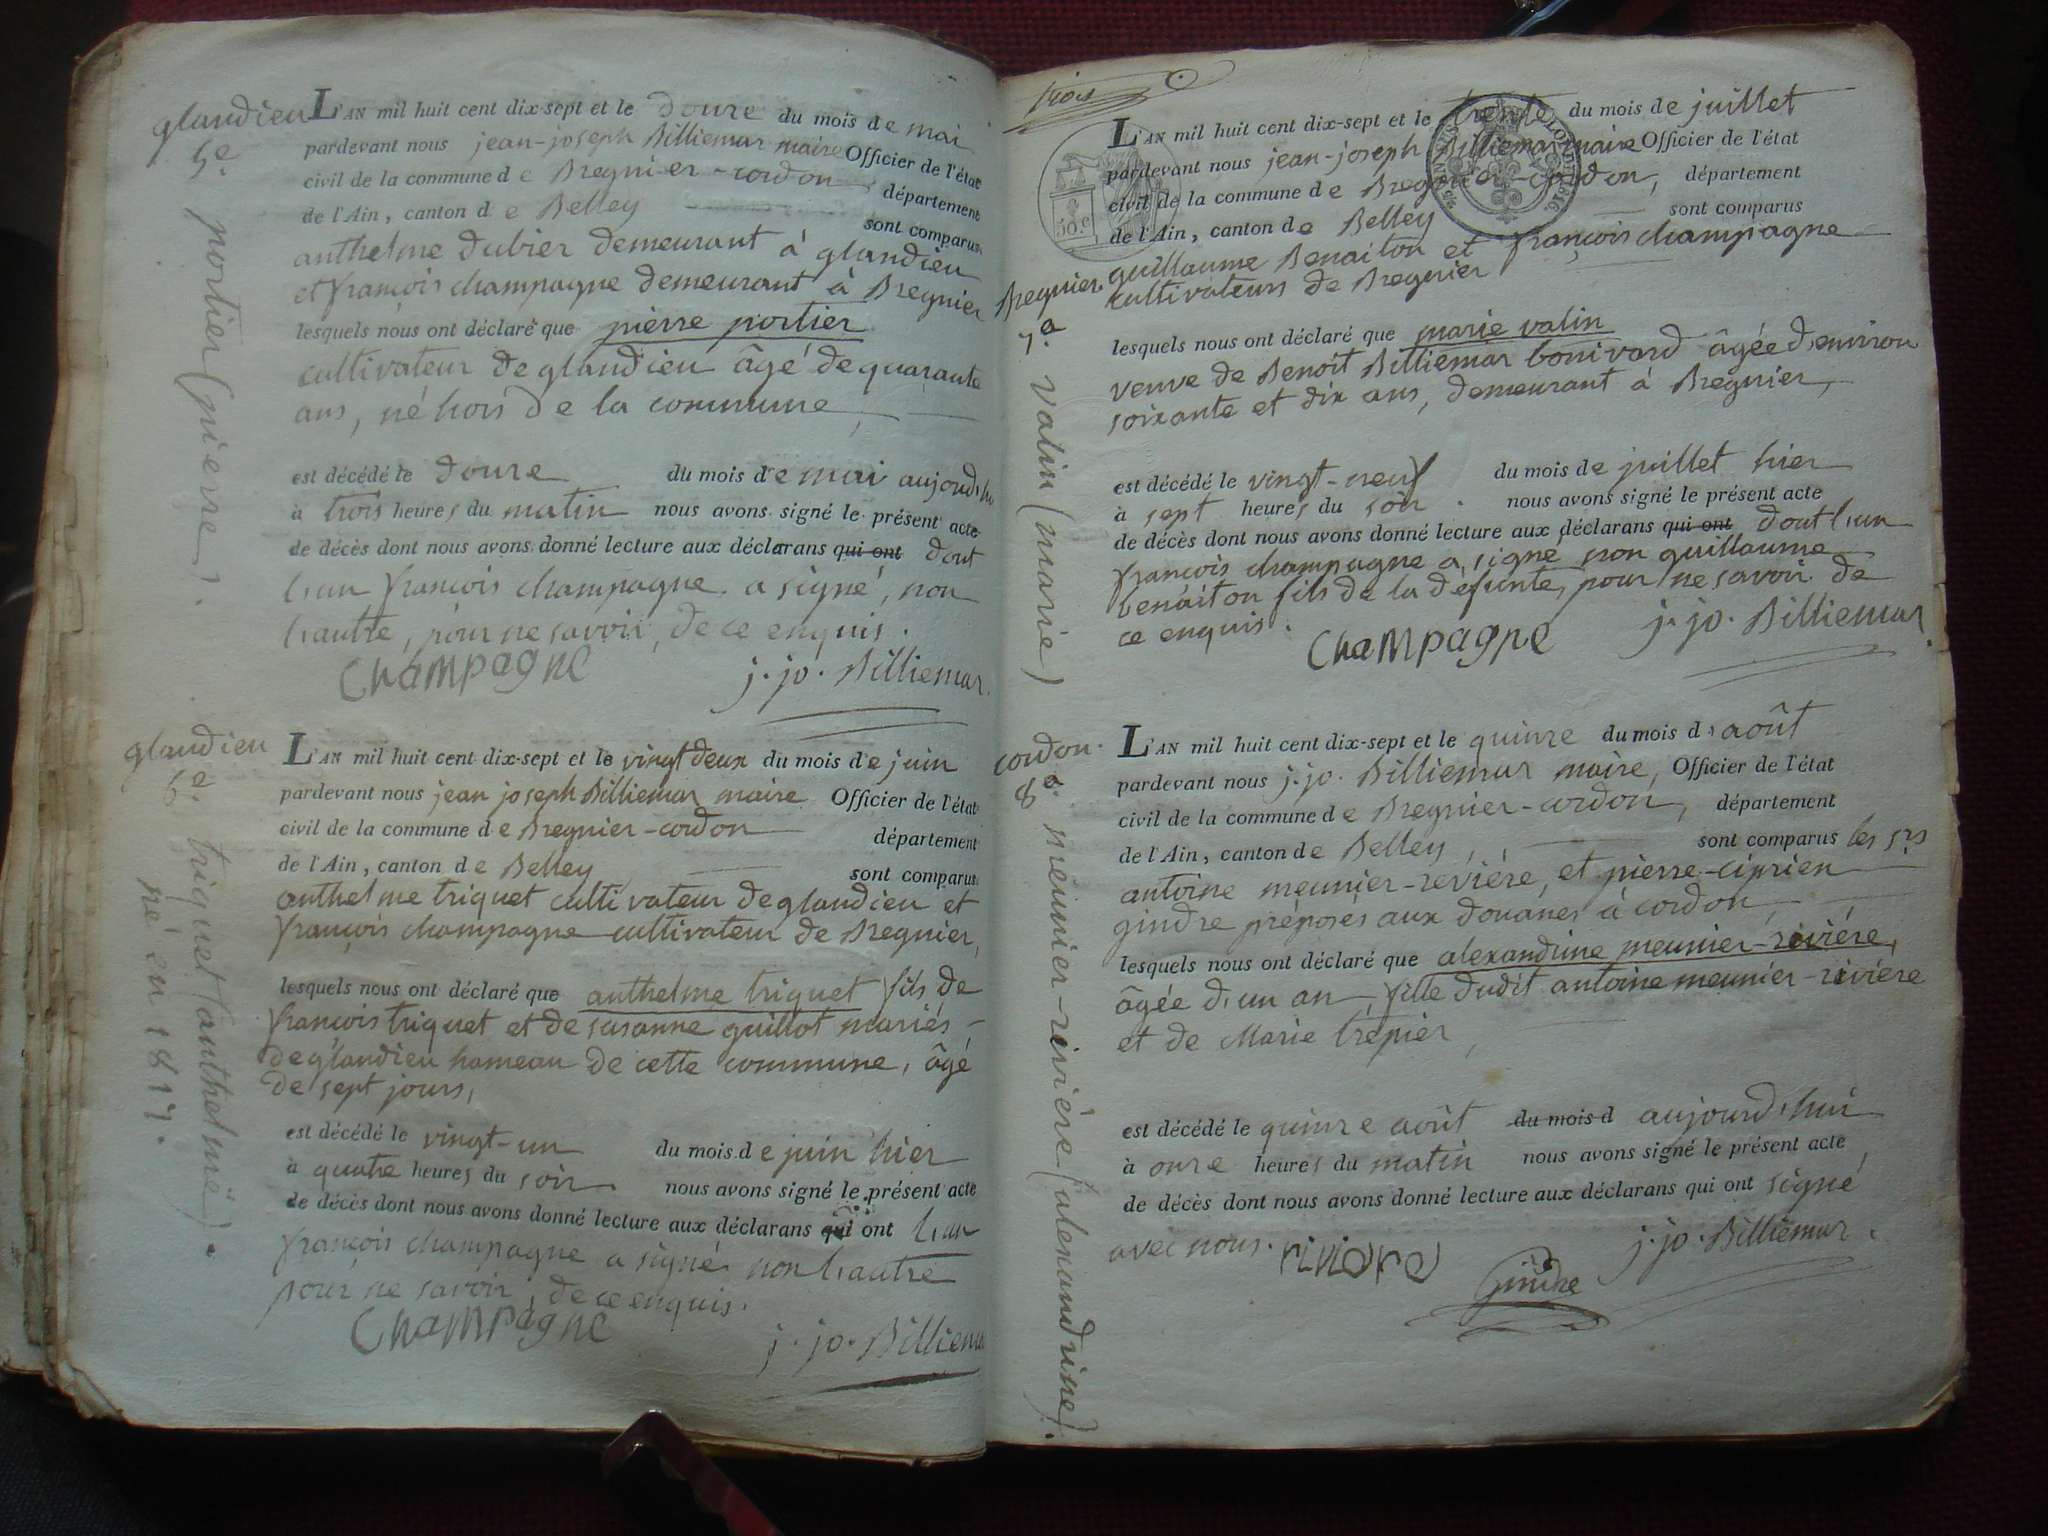 glandieu
5e.
portier (pierre).
L'AN mil huit cent dix-sept et le douze du mois de mai
pardevant nous jean-joseph Billiemar maire Officier de l'état
civil de la commune de Bregnier-cordon, département
de l'Ain, canton de Belley sont comparus
anthelme dubier demeurant à glandieu
et françois champagne demeurant à Bregnier
lesquels nous ont déclaré que pierre portier
cultivateur de glandieu âgé de quarante
ans, né hors de la commune,
est décédé le douze du mois de mai aujourd'hu
à trois heures du matin nous avons signé le présent acte
de décès dont nous avons donné lecture aux déclarans qui ont dont
l'un françois champagne a signé, non
l'autre, pour ne savoir, de ce enquis.
Champagne j. jo. Billiemar.
glandieu
6e.
triquet (anthelme).
né en 1817.
L'AN mil huit cent dix-sept et le vingt deux du mois de juin
pardevant nous jean joseph Billiemar maire Officier de l'état
civil de la commune de Bregnier-cordon département
de l'Ain, canton de Belley sont comparus
anthelme triquet cultivateur de glandieu et
françois champagne cultivateur de Bregnier,
lesquels nous ont déclaré que anthelme triquet fils de
françois triquet et de susanne guillot mariés
de glandieu hameau de cette commune, âgé
de sept jours,
est décédé le vingt-un du mois de juin hier
à quatre heures du soir. nous avons signé le présent acte
de décès dont nous avons donné lecture aux déclarans qui ont l'un
françois champagne a signé non l'autre
pour ne savoir, de ce enquis.
Champagne j. jo. Billiema
trois
50 c.
1816.
Bregnier.
7e.
valin (marie)
L'AN mil huit cent dix-sept et le trente du mois de juillet
pardevant nous jean-joseph Billiemar maire Officier de l'état
civil de la commune de Bregnier-cordon, département
de l'Ain, canton de Belley sont comparus
guillaume Benaiton et françois champagne
cultivateurs de Bregnier
lesquels nous ont déclaré que marie valin
veuve de Benoit Billiemar bonivard âgée d'environ
soixante et dix ans, demeurant à Bregnier,
est décédé le vingt-neuf du mois de juillet hier
à sept heures du soir. nous avons signé le présent acte
de décès dont nous avons donné lecture aux déclarans qui ont dont l'un
françois champagne a signé, non guillaume
benaiton fils de la défunte, pour ne savoir de
ce enquis.
Champagne j. jo. Billiemar.
cordon.
8e.
meunier-rivière (alexandrine).
L'AN mil huit cent dix-sept et le quinze du mois d'août
pardevant nous j. jo. Billiemar maire, Officier de l'état
civil de la commune de Bregnier-cordon, département
de l'Ain, canton de Belley, sont comparus les srs
antoine meunier-reviére, et pierre-ciprien
gindre préposés aux douanes à cordon,
lesquels nous ont déclaré que alexandrine meunier-reviére,
âgée d'un an fille dudit antoine meunier-riviére
et de Marie trépier,
est décédé le quinze août du mois d aujourd'hui
à onze heures du matin nous avons signé le présent acte
de décès dont nous avons donné lecture aux déclarans qui ont signé
avec nous. riviere
Gindre
j. jo. Billiemar.